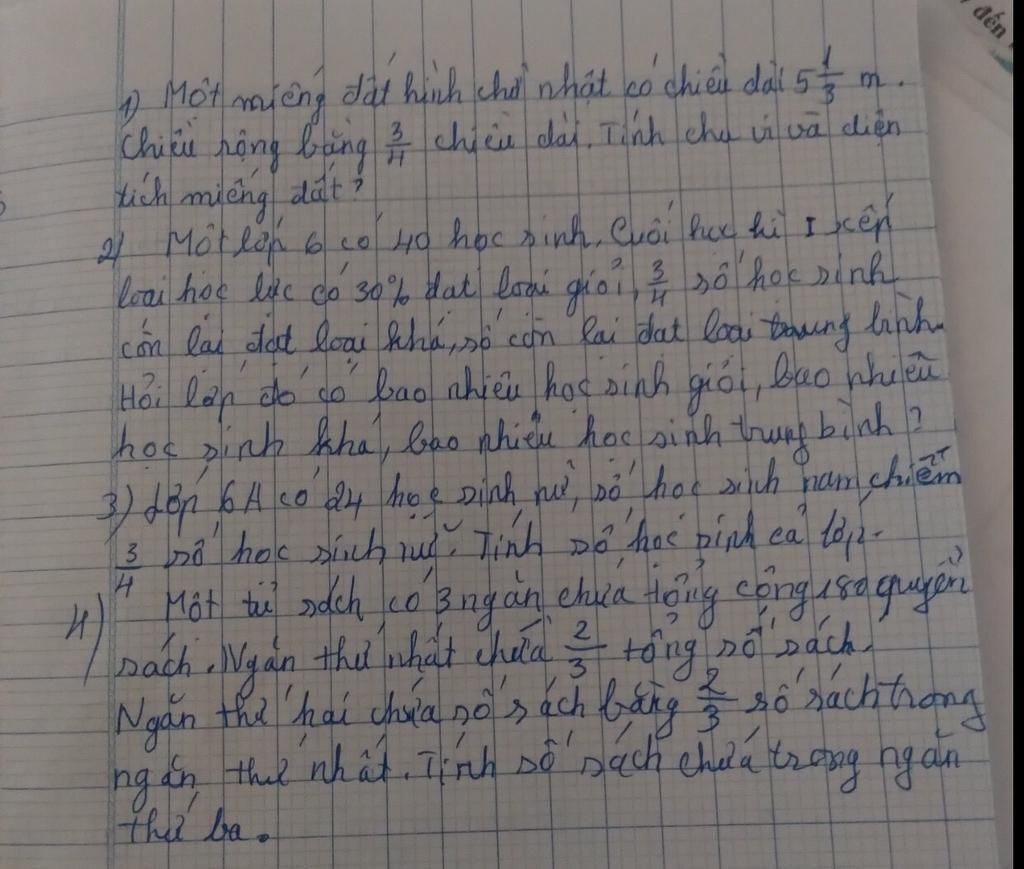 đến
1) Một miếng đất hình chữ nhật có chiều dài 5 1/3 m.
Chiều rộng bằng 3/4 chiều dài. Tính chu vi và diện
tích miếng đất?
2) Một lớp 6 có 40 học sinh. Cuối học kì I xếp
loại học lực có 30% đạt loại giỏi, 3/4 số học sinh
còn lại đạt loại khá, số còn lại đạt loại trung bình.
Hỏi lớp đó có bao nhiêu học sinh giỏi, bao nhiêu
học sinh khá, bao nhiêu học sinh trung bình?
3) Lớp 6A có 24 học sinh nữ, số học sinh nam chiếm
3/4 số học sinh nữ. Tính số học sinh cả lớp.
4) Một tủ sách có 3 ngăn chứa tổng cộng 180 quyển
sách. Ngăn thứ nhất chứa 2/3 tổng số sách.
Ngăn thứ hai chứa số sách bằng 2/3 số sách trong
ngăn thứ nhất. Tính số sách chứa trong ngăn
thứ ba.